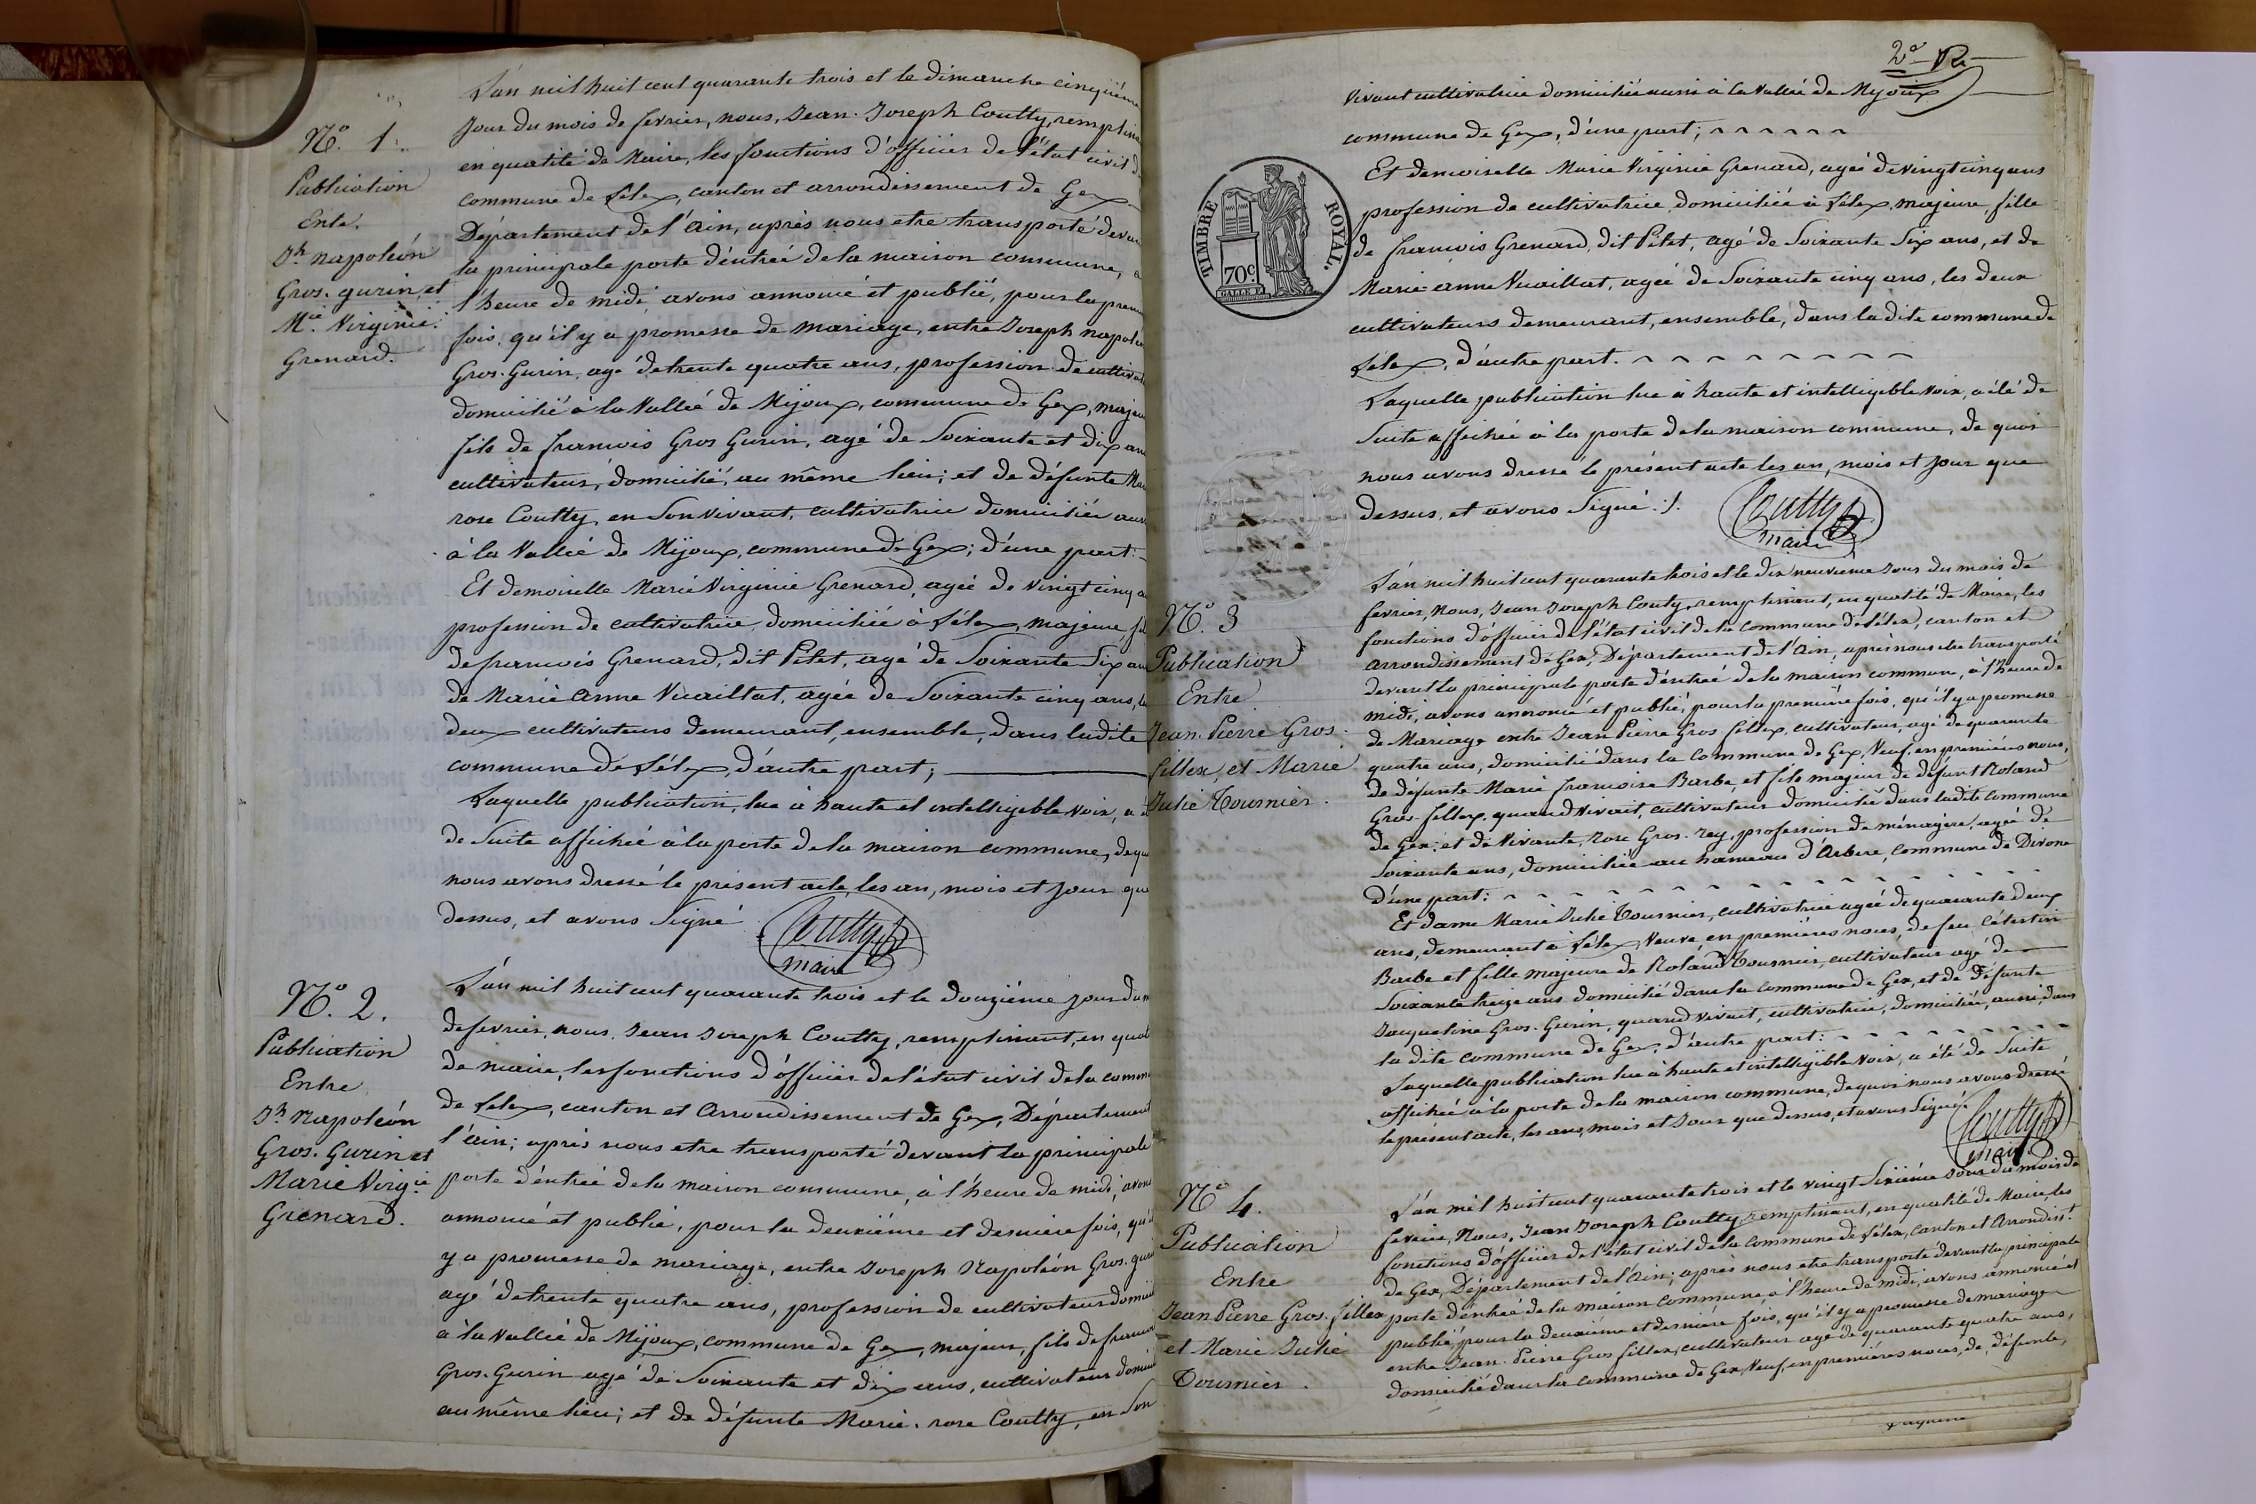 N.° 1.
Publication
Entre.
J.h napoléon
Gros. gurin, et
M.ie Virginie
Grenard.
L'an mil huit cent quarante trois et le dimanche cinquième
jour du mois de fevrier, nous, Jean Joseph Coutty, remplissa
en qualité de Maire, les fonctions d'officier de l'état civil d
commune de Lélex, canton et arrondissement de Gex
Département de l'Ain, après nous etre transporté devan
la principale porte d'éntrée de la maison commune, a
l'heure de midi avons annoncé et publié, pour la prem
fois, qu'il y a promesse de mariage, entre Joseph napoléo
Gros. Gurin, agé de trente quatre ans, profession de cultivat
domicilié à la Vallée de Mijoux, commune de Gex, majeu
fils de francois Gros Gurin, agé de Soixante et dix ans
cultivateur, domicilié, au même lieu; et de défunte Mar
rose Coutty, en Son vivant, cultivatrice domiciliée auss
à la Vallée de Mijoux, commune de Gex; d'une part:
Et demoiselle Marie Virginie Grenard, agée de vingt cinq a
profession de cultivatrice, domiciliée à Lélex, majeure, fil
de francois Grenard, dit Pilet, agé de Soixante Six ans
de Marie Anne Vuaillat, agée de Soixante cinq ans, le
deux cultivateurs demeurant, ensemble, dans ladite
commune de Lélex, d'autre part;
Laquelle publication, lue à haute et intelligible voix, a é
de Suite affichée à la porte de la maison commune, de qu
nous avons dressé le présent acte, les an, mois et jour que
dessus, et avons Signé
Coutty
maire
N.° 2.
Publication
Entre
J.h Napoléon
Gros. Gurin et
Marie Virg.ie
Grenard.
L'an mil huit cent quarante trois et le douzième jour du m
de fevrier, nous, Jean Joseph Coutty, remplissant, en quali
de maire, les fonctions d'officier de l'état civil de la commu
de Lélex, canton et Arrondissement de Gex, Département
l'ain; après nous etre transporté devant la principale
porte d'éntrée de la maison commune, à l'heure de midi, avons
annoncé et publié, pour la deuxième et dernière fois, qu'il
y a promesse de mariage, entre Joseph Napoléon Gros. guri
agé de trente quatre ans, profession de cultivateur domicil
à la vallée de Mijoux, commune de Gex, majeur, fils de francoi
Gros. Gurin agé de Soixante et dix ans, cultivateur domicil
au même lieu; et de défunte Marie. rose Coutty, en Son
2.e
vivant cultivatrice domiciliée aussi à la Vallée de Mijoux
commune de Gex, d'une part;
TIMBRE ROYAL.
70c
Et demoiselle Marie Virginie Grenard, agée de vingt cinq ans
profession de cultivatrice, domiciliée à Lélex, majeure, fille
de francois Grenard, dit Pilet, agé de Soixante Six ans, et de
Marie anne Vuaillat, agée de Soixante cinq ans, les deux
cultivateurs demeurant, ensemble, dans ladite commune de
Lélex, d'autre part.
Laquelle publication lue à haute et intelligible voix, a été de
Suite affichée à la porte de la maison commune, de quoi
nous avons dressé le présent acte les an, mois et jour que
dessus, et avons Signé
Coutty
maire
N.° 3
Publication
Entre
Jean. Pierre Gros.
fillex, et Marie
Julie Tournier.
L'an mil huit cent quarante trois et le dix neuvième jour du mois de
fevrier, Nous, Jean Joseph Coutty, remplissant, en qualité de Maire, les
fonctions d'officier de l'état civil de la commune de Lélex, canton et
arrondissement de Gex, Département de l'Ain, après nous etre transporté
devant la principale porte d'éntrée de la maison commune, à l'heure de
midi, avons annoncé et publié, pour la première fois, qu'il y a promesse
de Mariage entre Jean Pierre Gros fillex, cultivateur, agé de quarante
quatre ans, domicilié dans la commune de Gex, Veuf, en premières noces,
de défunte Marie francoise Barbe, et fils majeur de défunt Roland
Gros-fillex, quand vivait, cultivateur domicilié dans ladite commune
de Gex; et de Vivante, rose Gros. rey, profession de ménagère, agée de
Soixante ans, domiciliée au hameau d'Arbere, commune de Divone
d'une part:
Et dame Marie Julie Tournier, cultivatrice agée de quarante deux
ans, demeurant à Lélex, Veuve, en premières noces, de feu Célestin
Barbe et fille majeure de Roland Tournier, cultivateur agé de
Soixante treize ans domicilié dans la commune de Gex, et de défunte
Jacqueline Gros. Gurin, quand vivait, cultivatrice, domiciliée, aussi, dans
la dite commune de Gex, d'autre part:
Laquelle publication lue à haute et intelligible voix, a été de Suite
affichée à la porte de la maison commune, de quoi nous avons dressé
le présent acte, les an, mois et Jour que dessus, et avons Signé.
Coutty
maire
N.° 4.
Publication
Entre
Jean Pierre Gros. fillex
et Marie Julie
Tournier.
L'an mil huit cent quarante trois et le vingt Sixième Jour du Mois de
fevrier, Nous, Jean Joseph Coutty, remplissant, en qualité de Maire, les
fonctions d'officier de l'état civil de la commune de Lélex, canton et Arrondiss.t
de Gex, Département de l'Ain; après nous etre transporté devant la principale
porte d'éntrée de la maison commune, à l'heure de midi, avons annoncé et
publié, pour la deuxième et dernière fois, qu'il y a promesse de mariage
entre Jean. Pierre Gros fillex, cultivateur agé de quarante quatre ans,
domicilié dans la commune de Gex, Veuf, en premières noces, de, défunte,